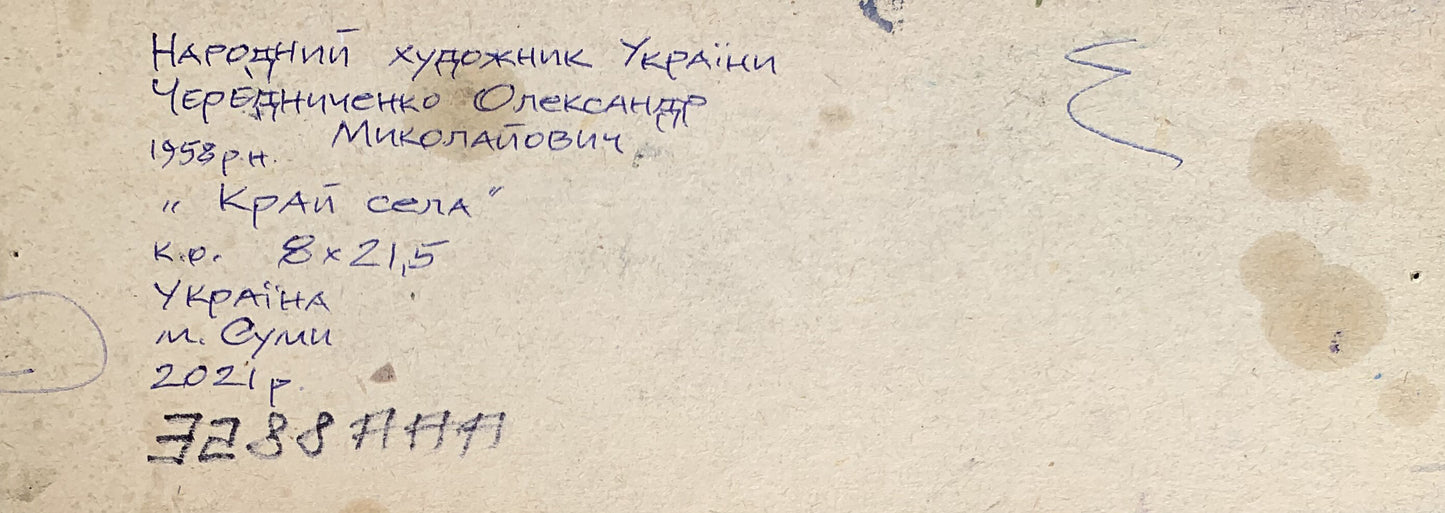 Народний художник України
Чередниченко Олександр
Миколайович
1958 р.н.
"Край села"
к.о. 8х21,5
Україна
м. Суми
2021 р.